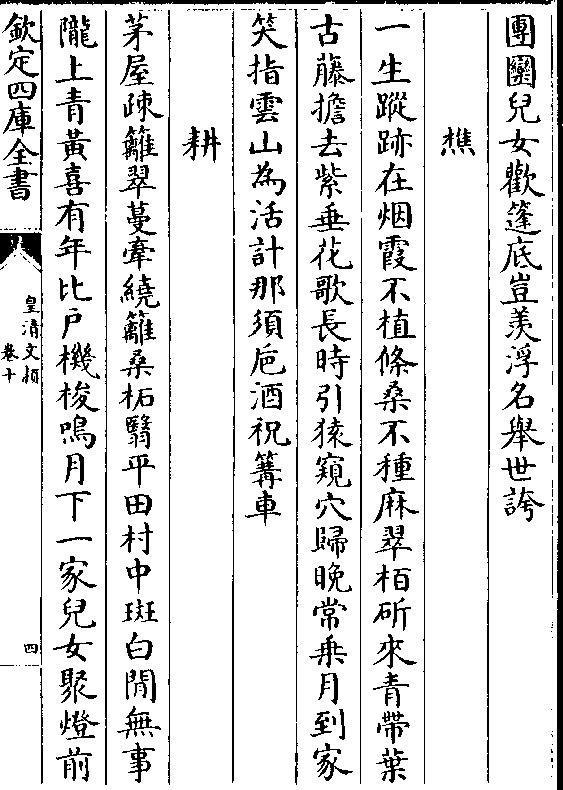 團圞兒女歡篷底豈羡浮名舉世誇
樵
一生蹤跡在烟霞不植條桑不種麻翠栢斫來青帶葉
古藤擔去紫垂花歌長時引猿窺穴歸晚常乗月到家
笑指雲山為活計那須卮酒祝篝車
耕
茅屋疎籬翠蔓牽繞籬桑柘翳平田村中斑白閒無事
隴上青黃喜有年比戶機梭鳴月下一家兒女聚燈前
欽定四庫全書
皇清文頴
卷十
四